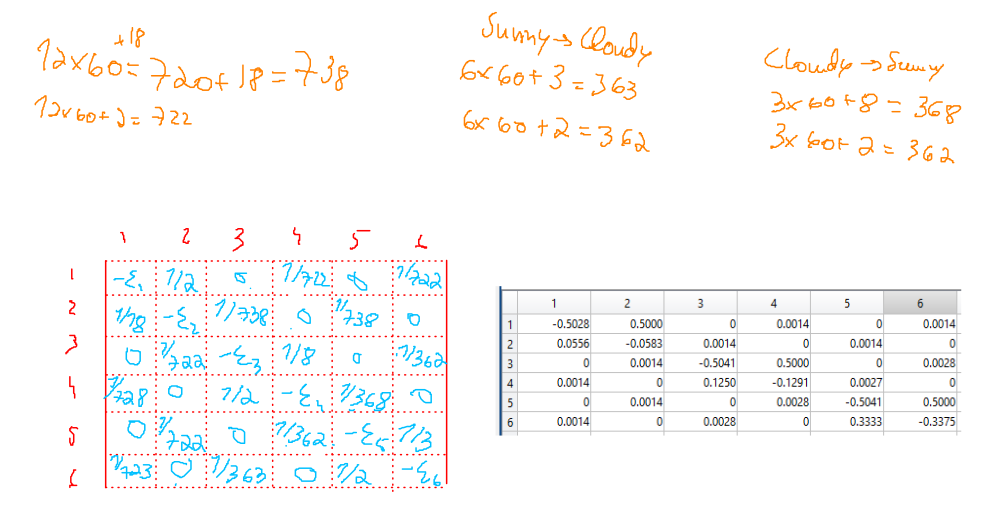 +18
12x60=720+18=738
12x60+2=722
Sunny→Cloudy
6x60+3=363
6x60+2=362
Cloudy→Sunny
3x60+8=368
3x60+2=362
1 2 3 4 5 6
1 -ε₁ 1/2 0 1/722 0 1/722
2 1/18 -ε₂ 1/738 0 1/738 0
3 0 1/722 -ε₃ 1/8 0 1/362
4 1/728 0 1/2 -ε₄ 1/368 0
5 0 1/722 0 1/362 -ε₅ 1/3
6 1/723 0 1/363 0 1/2 -ε₆
1 2 3 4 5 6
1 -0.5028 0.5000 0 0.0014 0 0.0014
2 0.0556 -0.0583 0.0014 0 0.0014 0
3 0 0.0014 -0.5041 0.5000 0 0.0028
4 0.0014 0 0.1250 -0.1291 0.0027 0
5 0 0.0014 0 0.0028 -0.5041 0.5000
6 0.0014 0 0.0028 0 0.3333 -0.3375